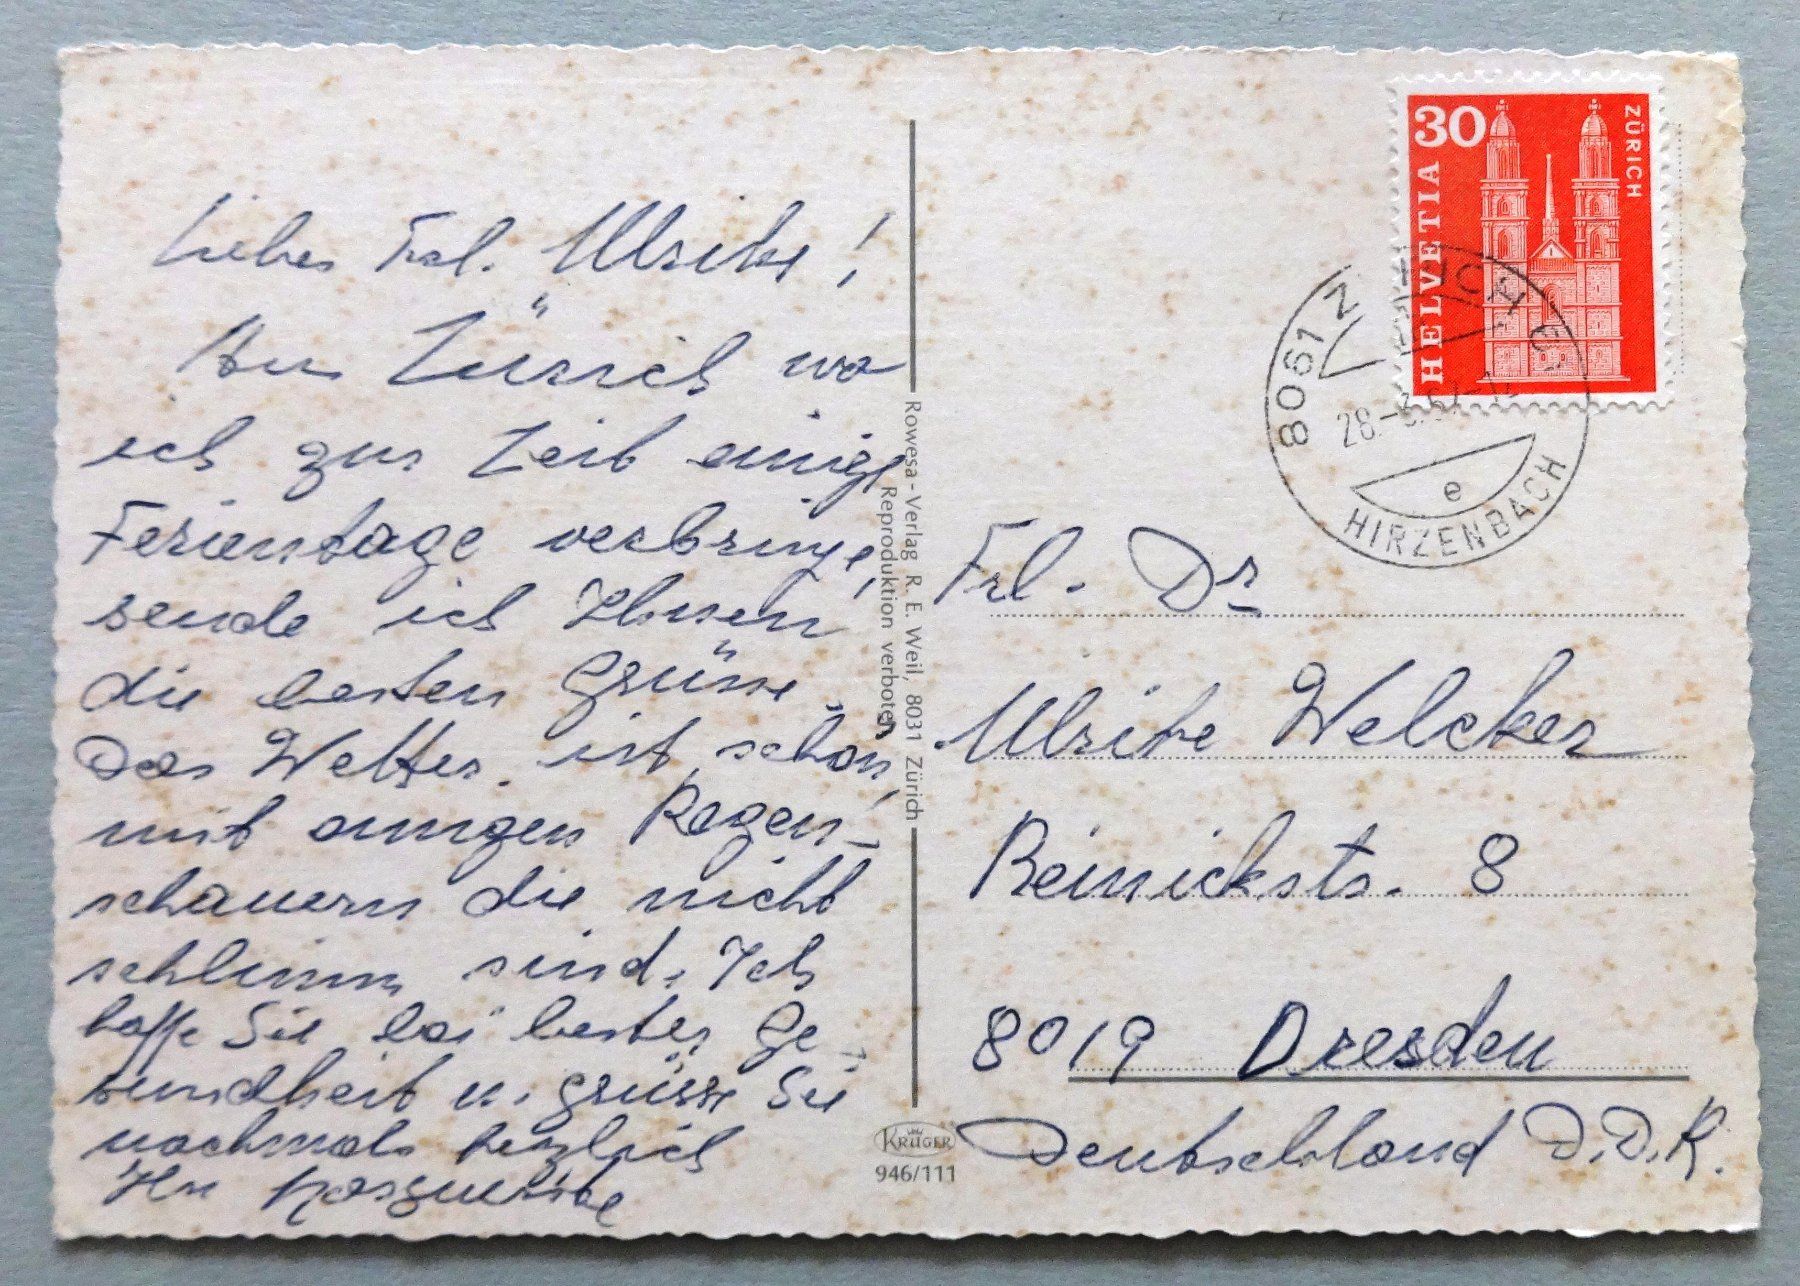 Liebes Frl. Ulrike!
Aus Zürich wo
ich zur Zeit einige
Ferientage verbringe,
sende ich Ihnen
die besten Grüsse.
Das Wetter ist schön,
mit einigen Regen-
schauern die nicht
schlimm sind. Ich
hoffe Sie bei bester Ge-
sundheit u. grüsse Sie
nochmals herzlich
Ihr
Rowesa-Verlag R. E. Weil, 8031 Zürich
Reproduktion verboten
KRÜGER
946/111
30
HELVETIA
ZÜRICH
8061 ZÜRICH
28.-3.
e
HIRZENBACH
Frl. Dr
Ulrike Welcker
Reinickstr. 8
8019 Dresden
Deutschland D.D.R.